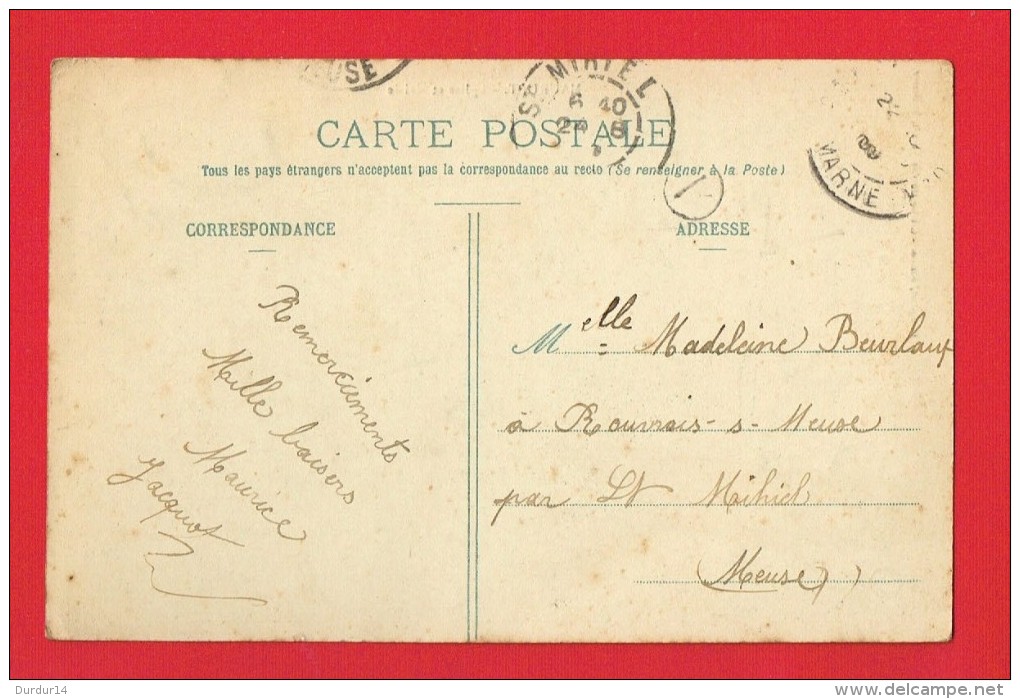 MEUSE
St MIHIEL
6 40
MARNE
CARTE POSTALE
Tous les pays étrangers n'acceptent pas la correspondance au recto (Se renseigner à la Poste)
CORRESPONDANCE
Remerciements
Mille baisers
Maurice
Jacquot
ADRESSE
Melle Madeleine Beurlaux
à Rouvrois-s-Meuse
par St Mihiel
(Meuse)
Durdur14
www.delcampe.net